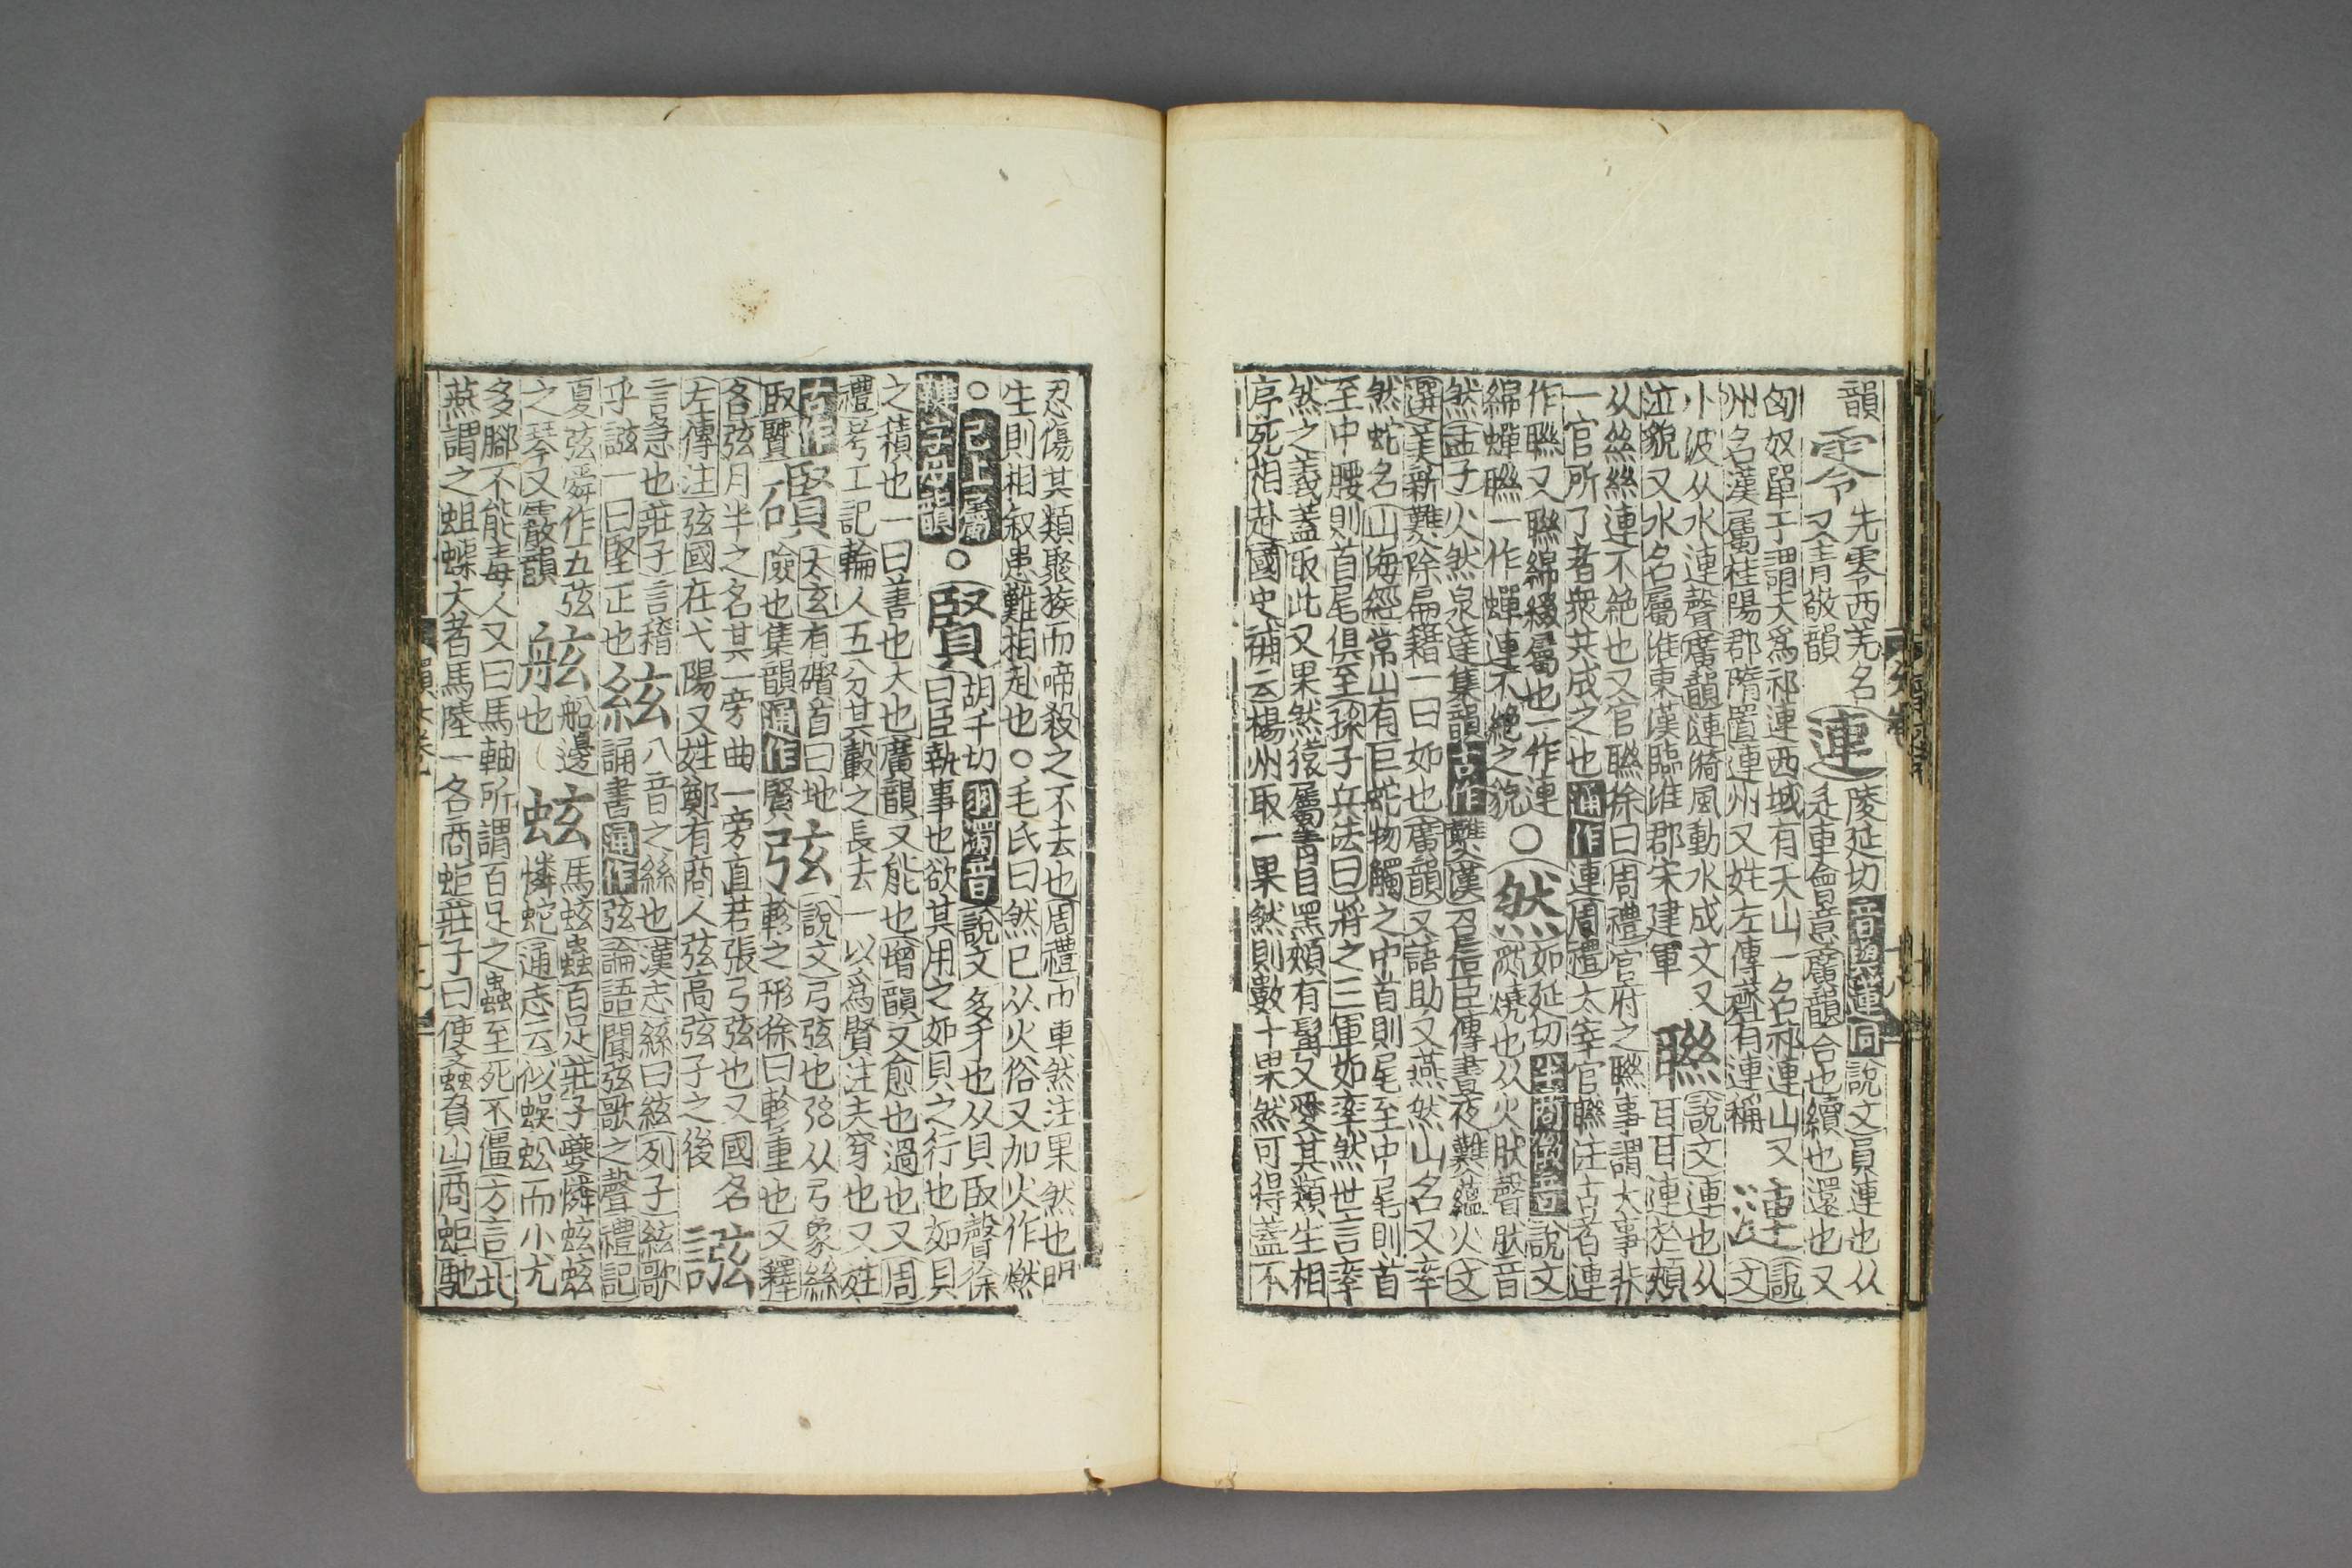 韻零先零西羌名又青敬韻連陵延切說文員連也从辵車會意廣韻合也續也還也又
匈奴單于謂天爲祁連西域有天山一名祁連山又州名漢屬桂陽郡隋置連州又姓左傳齊有連稱漣說文
小波从水連聲廣韻漣漪風動水成文又泣貌又水名屬淮東漢臨淮郡宋建軍聯說文連也从耳耳連於頰
从絲絲連不絶也又官聯徐曰周禮官府之聯事謂大事非一官所了者衆共成之也通作連周禮太宰官聯注古者連
作聯又聯綿綴屬也一作連綿蟬聯一作蟬連不絶之貌○然如延切說文燒也从火肰聲肰音
然孟子火然泉達集韻古作䕼漢召信臣傳晝夜難蘊火文選美新難除扁籍一曰如也廣韻又語助又燕然山名又率
然蛇名山海經常山有巨蛇物觸之中首則尾至中尾則首至中腰則首尾俱至孫子兵法曰將之三軍如率然世言率
然之義蓋取此又果然猿屬青目黑頰有髯又愛其類生相序死相赴國史補云楊州取一果然則數十果然可得蓋不
忍傷其類聚族而啼殺之不去也周禮巾車然注果然也明生則相叙患難相赴也○毛氏曰然已从火俗又加火作燃
○已上屬鞬字母韻○賢胡千切羽濁音說文多才也从貝臤聲徐曰臣執事也欲其用之如貝之行也如貝
之積也一曰善也大也廣韻又能也增韻又愈也過也又周禮考工記輪人五分其轂之長去一以爲賢注大穿也又姓
古作臤贒礥太玄有礥首曰地險也集韻通作賢弦說文弓弦也弜从弓象絲軫之形徐曰軫重也又釋
名弦月半之名其一旁曲一旁直若張弓弦也又國名左傳注弦國在弋陽又姓鄭有商人弦高弦子之後誸
言急也莊子言稽乎誸一曰堅正也絃八音之絲也漢志絲曰絃列子絃歌誦書通作弦論語聞弦歌之聲禮記
夏弦舜作五弦之琴又霰韻舷船邊也蚿馬蚿蟲百足莊子夔憐蚿蚿憐蛇通志云似蜈蚣而小尤
多腳不能毒人又曰馬軸所謂百足之蟲至死不僵方言北燕謂之蛆蟝大者馬陸一名商蚷莊子曰使蚉蝱負山商蚷馳